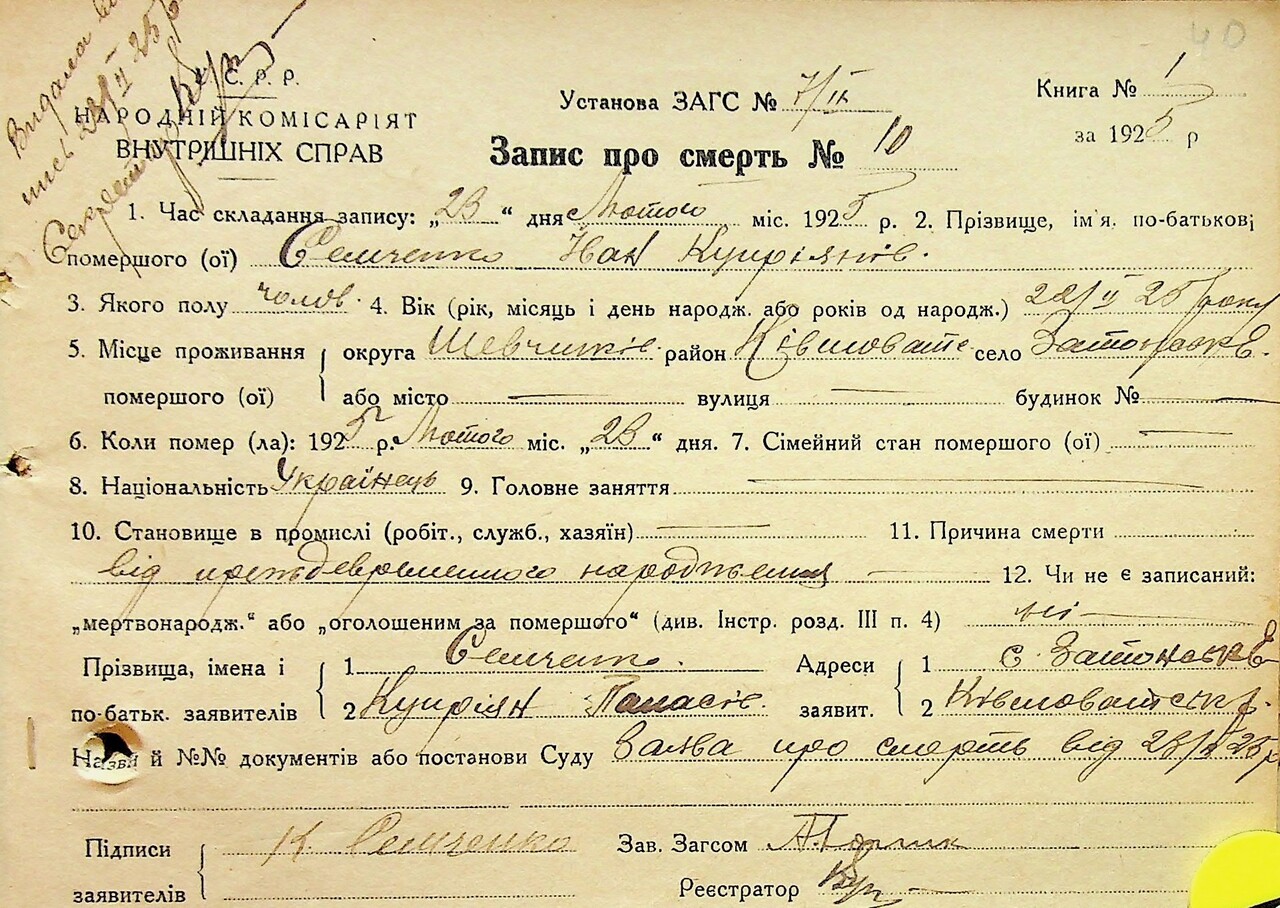 40
Видала
Секретар
С. Р. Р.
НАРОДНІЙ КОМІСАРІЯТ
ВНУТРИШНІХ СПРАВ
Установа ЗАГС № 7/ІХ
Запис про смерть № 10
Книга № 1
за 1925 р
1. Час складання запису: „23“ дня Лютого міс. 1925 р. 2. Прізвище, ім'я. по-батькові
помершого (ої) Семченко Іван Купріянів.
3. Якого полу чолов. 4. Вік (рік, місяць і день народж. або років од народж.) 22/ІІ 25 року
5. Місце проживання помершого (ої) округа Шевченків. район село Затонське.
або місто — вулиця — будинок № —
6. Коли помер (ла): 1925 р. Лютого міс. „23“ дня. 7. Сімейний стан помершого (ої) —
8. Національність Українець 9. Головне заняття —
10. Становище в промислі (робіт., служб., хазяїн) — 11. Причина смерти
від преждевременного народження — 12. Чи не є записаний:
„мертвонародж.“ або „оголошеним за помершого“ (див. Інстр. розд. III п. 4) ні —
Прізвища, імена і по-батьк. заявителів 1 Семченко. Адреси заявит. 1 с. Затонське
2 Купріян Панасів. 2
Назви й №№ документів або постанови Суду Заява про смерть від 23/ІІ 25 р
Підписи заявителів К. Семченко Зав. Загсом
Реєстратор